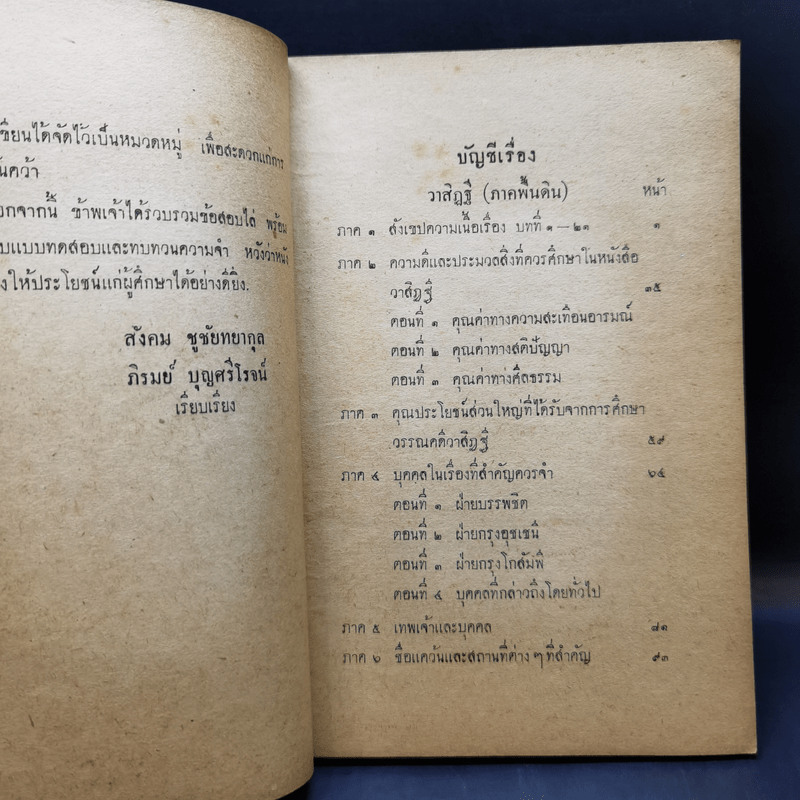 ขียนได้จัดไว้เป็นหมวดหมู่ เพื่อสะดวกแก่การ
นคว้า
อกจากนี้ ข้าพเจ้าได้รวบรวมข้อสอบไล่ พร้อม
บแบบทดสอบและทบทวนความจำ หวังว่าหนัง
งให้ประโยชน์แก่ผู้ศึกษาได้อย่างดียิ่ง.
สังคม ชูชัยทยากุล
ภิรมย์ บุญศรีโรจน์
เรียบเรียง
บัญชีเรื่อง
วาสิฏฐี (ภาคพื้นดิน) หน้า
ภาค ๑ สังเขปความเนื้อเรื่อง บทที่ ๑—๒๑ ๑
ภาค ๒ ความดีและประมวลสิ่งที่ควรศึกษาในหนังสือ
วาสิฏฐี ๓๕
ตอนที่ ๑ คุณค่าทางความสะเทือนอารมณ์
ตอนที่ ๒ คุณค่าทางสติปัญญา
ตอนที่ ๓ คุณค่าทางศีลธรรม
ภาค ๓ คุณประโยชน์ส่วนใหญ่ที่ได้รับจากการศึกษา
วรรณคดีวาสิฏฐี ๕๙
ภาค ๔ บุคคลในเรื่องที่สำคัญควรจำ ๖๔
ตอนที่ ๑ ฝ่ายบรรพชิต
ตอนที่ ๒ ฝ่ายกรุงอุชเชนี
ตอนที่ ๓ ฝ่ายกรุงโกสัมพี
ตอนที่ ๔ บุคคลที่กล่าวถึงโดยทั่วไป
ภาค ๕ เทพเจ้าและบุคคล ๘๑
ภาค ๖ ชื่อแคว้นและสถานที่ต่าง ๆ ที่สำคัญ ๙๓